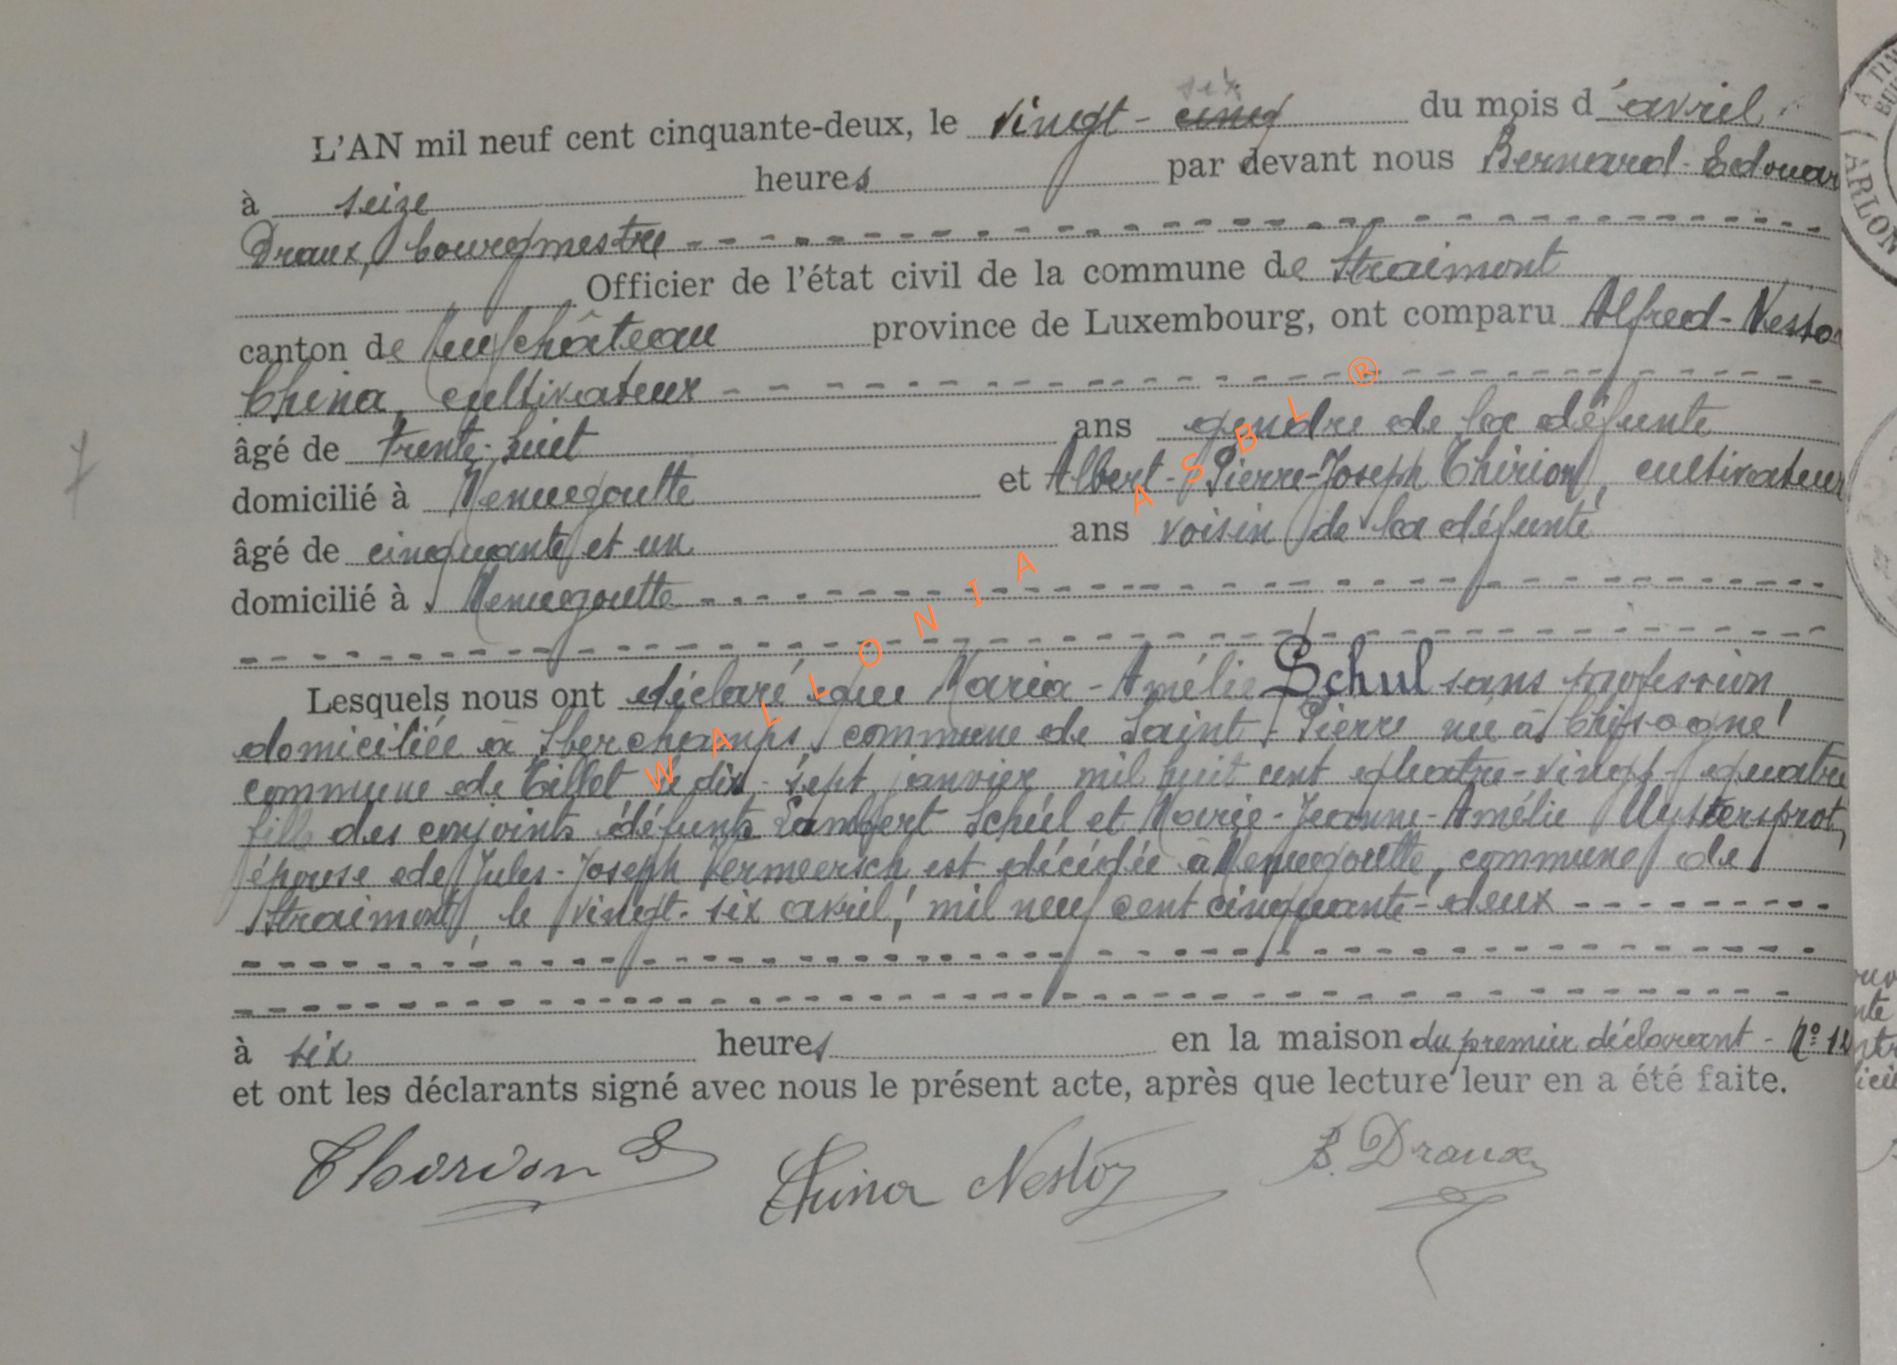 six
L'AN mil neuf cent cinquante-deux, le vingt - cinq du mois d'avril
à seize heures par devant nous Bernard-Edouar
Draux, bourgmestre
Officier de l'état civil de la commune de Straimont
canton de Neufchâteau province de Luxembourg, ont comparu Alfred-Nesto
China, cultivateur
âgé de trente-huit ans gendre de la défunte
domicilié à Menugoutte et Albert-Pierre-Joseph Thirion, cultivateur
âgé de cinquante et un ans voisin de la défunte
domicilié à Menugoutte
Lesquels nous ont déclaré que Maria-Amélie Schul sans profession,
domiciliée à Sberchamps, commune de Saint-Pierre née à Chisogne,
commune de Tillet le dix-sept janvier mil huit cent quatre-vingt-quatre
fille des conjoints défunts Lambert Schul et Marie-Jeanne-Amélie
épouse de Jules-Joseph Vermeersch est décédée à Menugoutte, commune de
Straimont, le vingt-six avril, mil neuf cent cinquante-deux
à six heures en la maison du premier déclarant - N° 12
et ont les déclarants signé avec nous le présent acte, après que lecture leur en a été faite.
Thirion
China Nestor
B. Draux
WALLONIA ASBL ®
ARLON